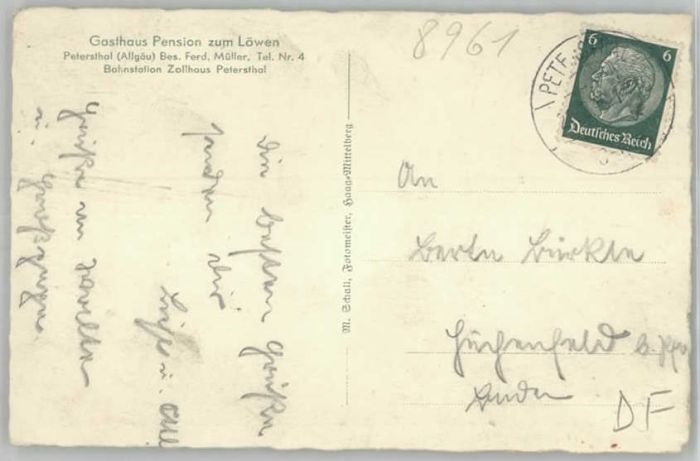 Gasthaus Pension zum Löwen
Petersthal (Allgäu) Bes. Ferd. Müller, Tel. Nr. 4
Bahnstation Zollhaus Petersthal
8961
6 6
Deutsches Reich
PETE
M. Schall, Fotomeister, Haag-Mittelberg
Die besten Grüße
senden Dir
Luise u.
Grüße an
u.
An
Berta Bürkle
Huchenfeld b. Pfo
Baden
DF